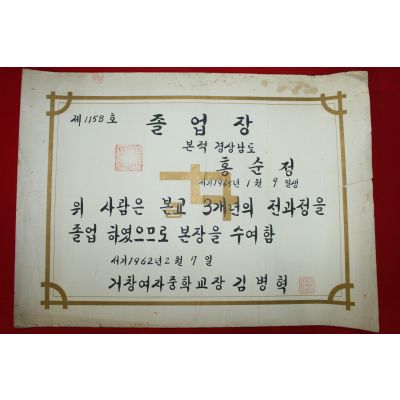 제1158호
졸업장
본적 경상남도
홍순정
서기1945년 1월 9일생
위 사람은 본교 3개년의 전과정을
졸업 하였으므로 본장을 수여함
서기1962년 2월 9일
거창여자중학교장 김병혁